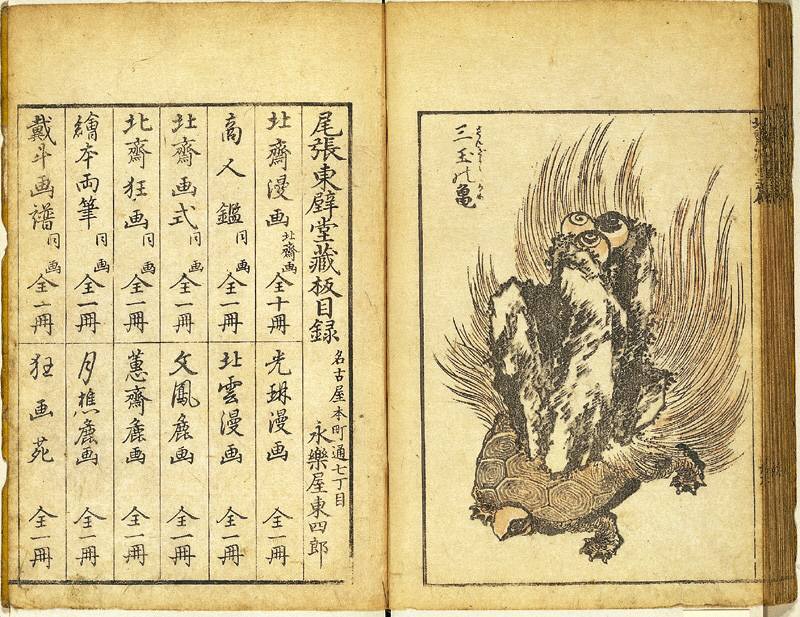 三玉の亀
尾張東壁堂藏板目録
名古屋本町通七丁目
永樂屋東四郎
北齋漫画 北齋画 全十冊
商人鑑 同画 全一冊
北齋画式 同画 全一冊
北齋狂画 同画 全一冊
繪本両筆 同画 全一冊
戴斗画譜 同画 全一冊
光琳漫画 全一冊
北雲漫画 全一冊
文鳳麁画 全一冊
蕙齋麁画 全一冊
月樵麁画 全一冊
狂画苑 全一冊